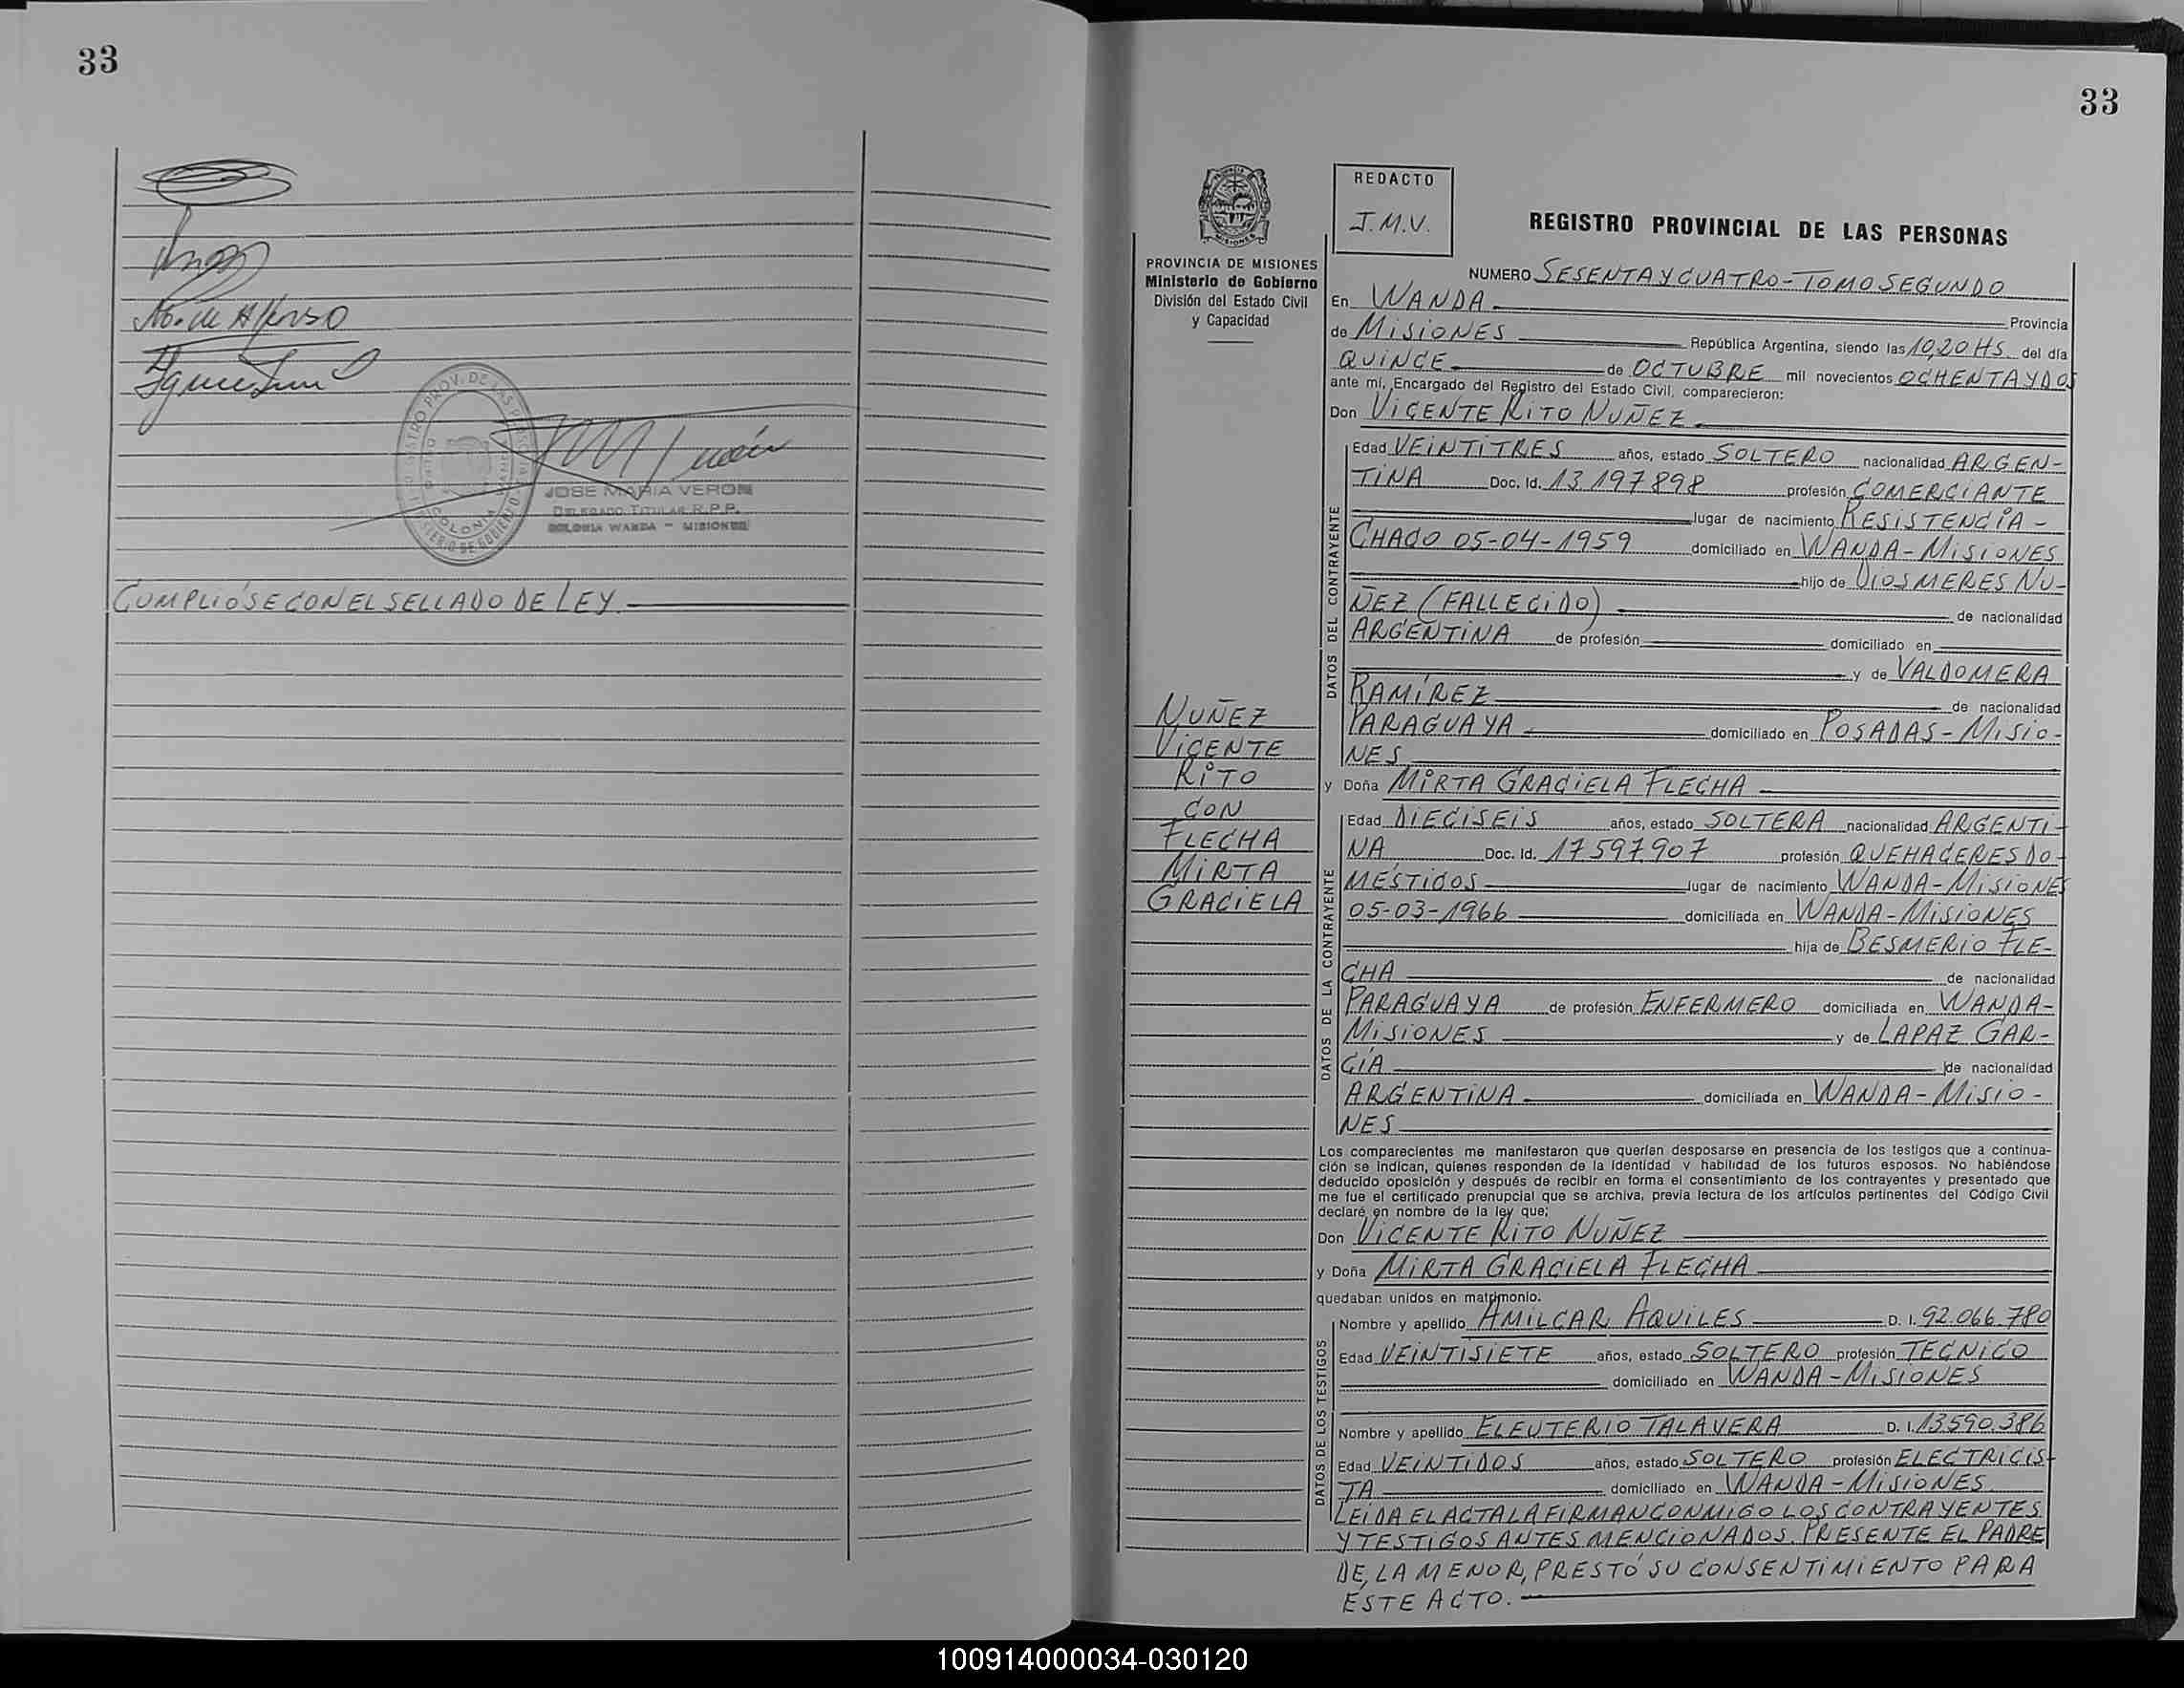 33
No. de Alfonso
JOSE MARIA VERON
DELEGADO TITULAR R.P.P.
COLONIA WANDA - MISIONES
CUMPLIÓSE CON EL SELLADO DE LEY.
33
PROVINCIA DE MISIONES
Ministerio de Gobierno
División del Estado Civil
y Capacidad
NUÑEZ
VICENTE
RITO
CON
FLECHA
MIRTA
GRACIELA
REDACTO
J.M.V.
REGISTRO PROVINCIAL DE LAS PERSONAS
NUMERO SESENTA Y CUATRO - TOMO SEGUNDO
En WANDA Provincia
de MISIONES República Argentina, siendo las 10,20 HS. del día
QUINCE de OCTUBRE mil novecientos OCHENTA Y DOS
ante mí, Encargado del Registro del Estado Civil, comparecieron:
Don VICENTE RITO NUÑEZ
DATOS DEL CONTRAYENTE
Edad VEINTITRES años, estado SOLTERO nacionalidad ARGEN-
TINA Doc. Id. 13.197.898 profesión COMERCIANTE
lugar de nacimiento RESISTENCIA -
CHACO 05-04-1959 domiciliado en WANDA - MISIONES
hijo de DIOSMERES NU-
ÑEZ (FALLECIDO) de nacionalidad
ARGENTINA de profesión domiciliado en
y de VALDOMERA
RAMÍREZ de nacionalidad
PARAGUAYA domiciliado en POSADAS - MISIO-
NES
y Doña MIRTA GRACIELA FLECHA
DATOS DE LA CONTRAYENTE
Edad DIECISEIS años, estado SOLTERA nacionalidad ARGENTI-
NA Doc. Id. 17.597.907 profesión QUEHACERES DO-
MÉSTICOS lugar de nacimiento WANDA - MISIONES
05-03-1966 domiciliada en WANDA - MISIONES
hija de BESMERIO FLE-
CHA de nacionalidad
PARAGUAYA de profesión ENFERMERO domiciliada en WANDA -
MISIONES y de LAPAZ GAR-
CÍA de nacionalidad
ARGENTINA domiciliada en WANDA - MISIO-
NES
Los comparecientes me manifestaron que querían desposarse en presencia de los testigos que a continua-
ción se indican, quienes responden de la identidad y habilidad de los futuros esposos. No habiéndose
deducido oposición y después de recibir en forma el consentimiento de los contrayentes y presentado que
me fue el certificado prenupcial que se archiva, previa lectura de los artículos pertinentes del Código Civil
declaré en nombre de la ley que;
Don VICENTE RITO NUÑEZ
y Doña MIRTA GRACIELA FLECHA
quedaban unidos en matrimonio.
DATOS DE LOS TESTIGOS
Nombre y apellido AMILCAR AQUILES D. I. 92.066.780
Edad VEINTISIETE años, estado SOLTERO profesión TECNICO
domiciliado en WANDA - MISIONES
Nombre y apellido ELEUTERIO TALAVERA D. I. 13.590.386
Edad VEINTIDOS años, estado SOLTERO profesión ELECTRICIS-
TA domiciliado en WANDA - MISIONES
LEIDA EL ACTA LA FIRMAN CONMIGO LOS CONTRAYENTES
Y TESTIGOS ANTES MENCIONADOS. PRESENTE EL PADRE
DE, LA MENOR, PRESTÓ SU CONSENTIMIENTO PARA
ESTE ACTO.
100914000034-030120